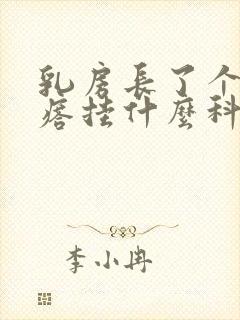 乳房長了个
痞挂什麼科
李小冉